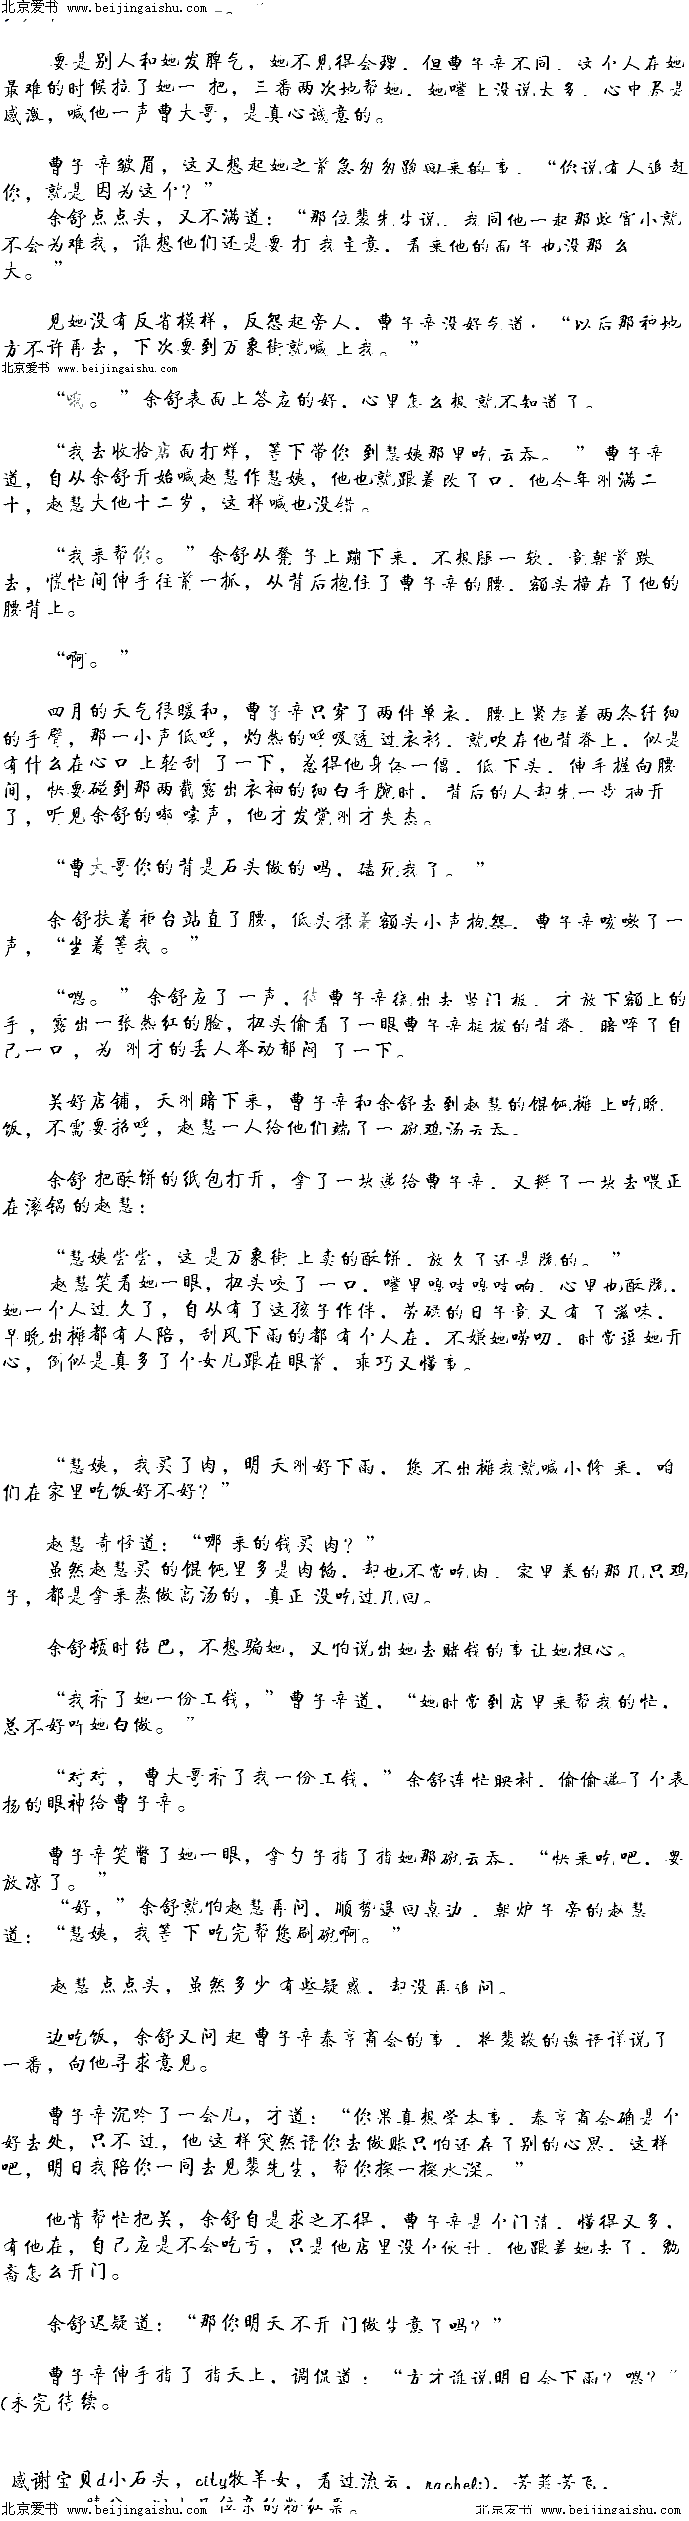 北京爱书 www.beijingaishu.com
要是别人和她发脾气，她不见得会理，但曹子辛不同，这个人在她
最难的时候拉了她一 把，三番两次地帮她，她嘴上没说太多，心中尽是
感激，喊他一声曹大哥，是真心诚意的。
曹子 辛皱眉，这又想起她之前急匆匆跑回来的事，“你说有人追赶
你，就是 因为这个？”
余舒点点头，又不满道：“那位裴先生说，我同他一起那些宵小就
不会为难我，谁想他们还是要 打 我主意，看来他的面子也没那 么
大。”
见她没有反省模样，反怨起旁人，曹子辛没好气道，“以后那种地
方不许再去，下次要到万象街就喊 上我。”
北京爱书 www.beijingaishu.com
“哦。”余舒表面上答应的好，心里怎么想 就不知道了。
“我去收拾店面打烊，等下带你 到慧姨那里吃 云吞。”曹子辛
道，自从余舒开始喊赵慧作慧姨，他也就跟着改了口，他今年刚满二
十，赵慧大他十二岁，这 样喊也没错。
“我来帮你。”余舒从凳子上蹦下来，不想腿一软，竟朝前跌
去，慌忙间伸手往前一抓，从背后抱住了曹子辛的腰，额头撞在了他的
腰背上。
“啊。”
四月的天气很暖和，曹子辛只穿了两件单衣，腰上紧挂着两条纤细
的手臂，那一小声低呼，灼热的呼吸透过衣衫，就吹在他背脊上，似是
有什么在心口 上轻刮 了一下，惹得他身体一僵，低 下头，伸手握向腰
间，快要碰到那两截露出衣袖的细白手腕时， 背后的人却先一步抽开
了，听见余舒的嘟 囔声，他才发觉刚才失态。
“曹大哥你的背是石头做的吗，磕死我了。”
余舒扶着柜台站直了腰，低头揉着额头小声抱怨，曹子辛咳嗽了一
声，“坐着等我 。”
“嗯。” 余舒应了一声，待曹子辛绕出去 竖门 板，才放下额上的
手 ，露出一张热红的脸，扭头偷看了一眼曹子辛挺拔的背脊，暗啐了自
己一口，为 刚才的丢人举动郁闷 了一下。
关好店铺，天刚暗下来，曹子辛和余舒去到赵慧的馄饨摊 上吃晚
饭，不需要招呼，赵慧一人给他们端了一碗鸡汤云吞。
余舒 把酥饼的纸包打开，拿了一块递给曹子辛，又掰了一块去喂正
在滚锅 的赵慧：
“慧姨尝尝，这 是万象街 上卖的酥饼，放久了还是脆的。”
赵慧笑看她一眼，扭头咬了 一口，嘴里嘎吱嘎吱响，心里也酥脆，
她一个人过 久了，自从有了这孩子作伴，劳碌的日子竟又有 了滋味，
早晚出摊都有人陪，刮风下雨的都 有个人在，不嫌她唠叨，时常逗她开
心，倒似是真多了个女儿跟在眼前，乖巧又懂事。
“慧姨，我买了肉，明 天刚好下雨， 您 不出摊我就喊小修 来，咱
们在家里吃饭好不好？”
赵慧 奇怪道：“哪 来的钱买 肉？”
虽然赵慧买 的馄饨里多是肉馅，却也不常吃肉，家里养的那几只鸡
子，都是拿来熬做高汤的，真正 没吃过几回。
余舒顿时结巴，不想骗她，又怕说出她去赌钱的事让她担心。
“我补了她一份工钱，”曹子辛道，“她时常到店里来帮我的忙，
总不好听她白做。”
“对对 ，曹大哥补了我一份工钱，”余舒连忙映衬，偷偷递了个表
扬的眼神给曹子辛。
曹子辛笑瞥了她一眼，拿勺子指了指她那碗云吞，“快来吃吧，要
放凉了。”
“好，”余舒就怕赵慧再问，顺势退回桌边，朝炉子旁的赵慧
道：“慧姨，我等 下吃完帮您刷碗啊。”
赵慧 点点头，虽然多少 有些疑惑，却没再追问。
边吃饭，余舒又问 起 曹子辛泰亨商会的事，将裴敬的邀请详说了
一番，向他寻求意见。
曹子辛沉吟了一会儿，才道：“你果真想学本事，泰亨商会确是个
好去处，只不 过，他 这 样突然请你去做账只怕还存了别的心思，这样
吧，明日我陪你一同去见裴先生，帮你探一探水深。”
他肯帮忙把关，余舒自是求之不得，曹子辛是个门清，懂得又多，
有他在，自己应是不会吃亏，只是他店里没个伙计，他跟着她去了，勉
斋怎么开门。
余舒迟疑道：“那你明天不开 门做生意了吗？”
曹子辛伸手指了 指天上，调侃道 ：“方才谁说明日会下雨？嗯？”
(未完待续。
感谢宝贝d小石头，city牧羊女，看过流云，rachel:)，芳菲芳飞，
北京爱书 www.beijingaishu.com 北京爱书 www.beijingaishu.com